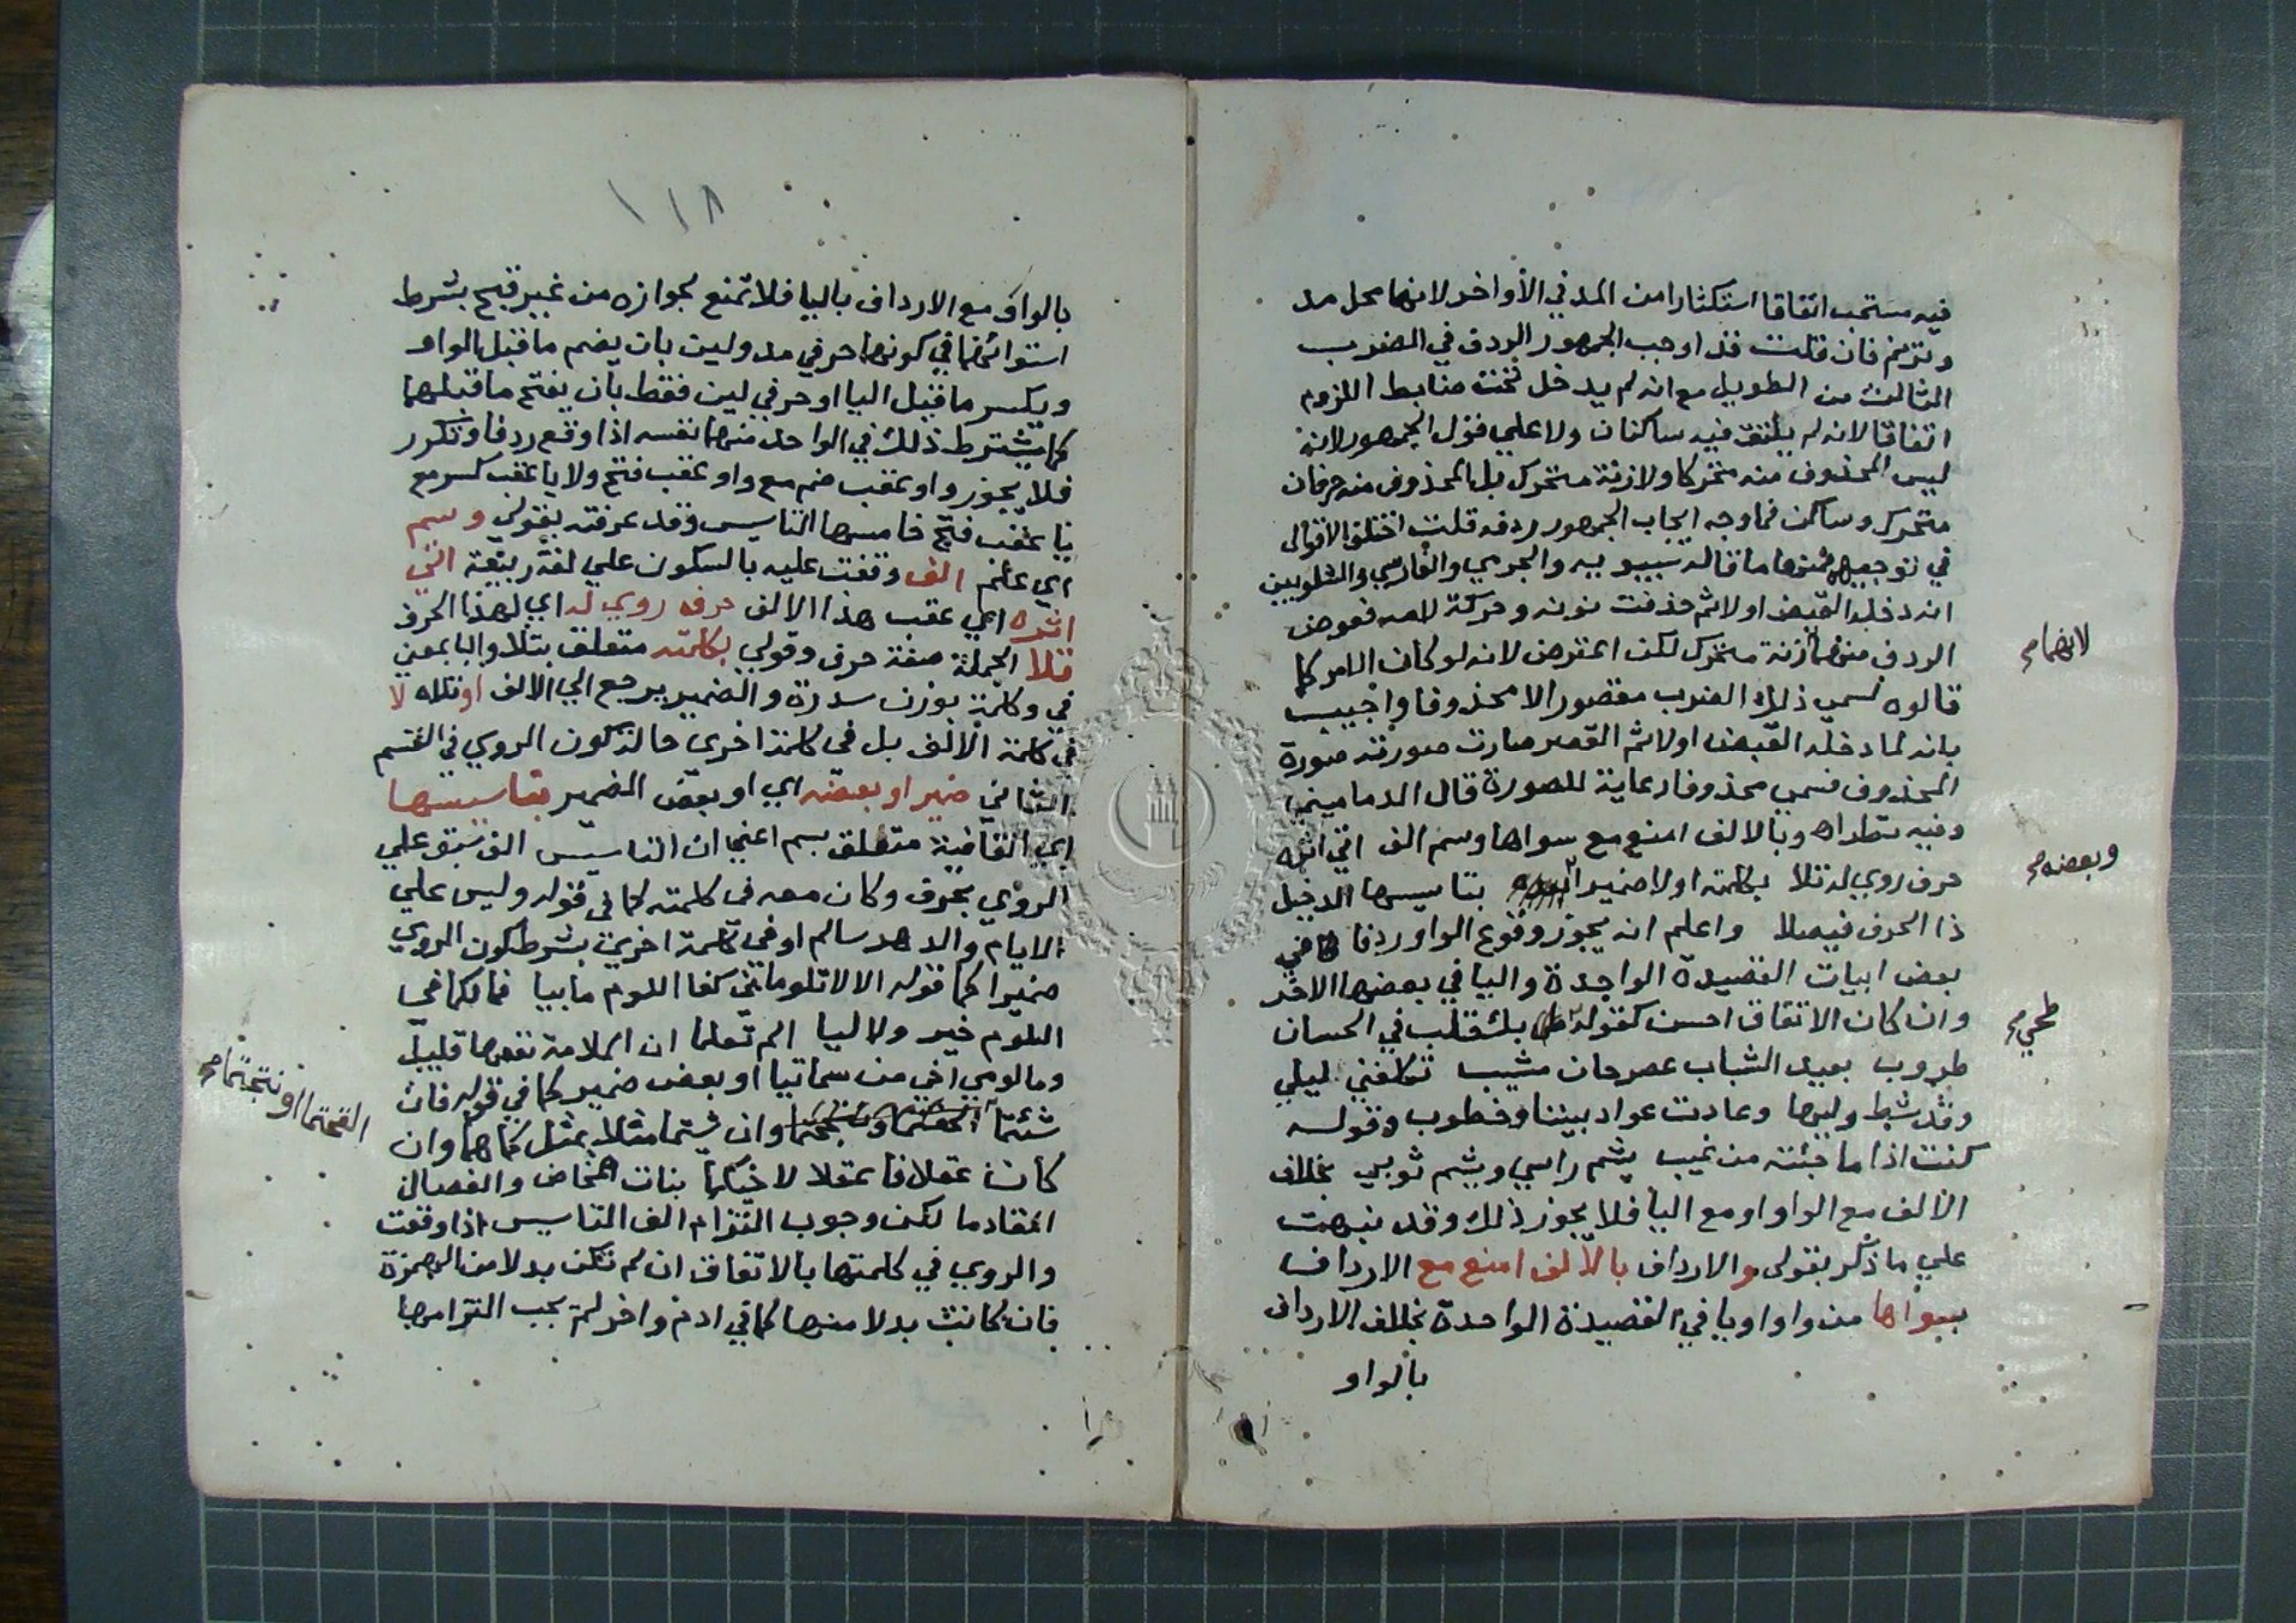 فيه مستحب اتفاقا استكثارا من المد في الأواخر لانها محل مد
وترنم فان قلت قد اوجب الجمهور الردف في الضرب
الثالث من الطويل مع انه لم يدخل تحت ضابط اللزوم
اتفاقا لانه لم يلتق فيه ساكنان ولا علي قول الجمهور لانه
ليس المحذوف منه متحركا ولا زنة متحرك بل المحذوف منه حرفان
متحرك وساكن فما وجه ايجاب الجمهور ردفه قلت اختلف الاقوال
في توجيهه فمنها ما قاله سيبويه والجرمي والفارسي والشلوبين
انه دخله القبض اولا ثم حذفت نونه وحركة لامه فعوض
الردف منهما زنة متحرك لكن اعترض لانه لو كان الامر كما
لانهمامح
قالوه لسمي ذلك الضرب مقصورا لا محذوفا واجيب
بانه لما دخله القبض اولا ثم القصر صارت صورته صورة
المحذوف فسمي محذوفا رعاية للصورة قال الدماميني
وفيه نظر اه وبالالف امنع مع سواها وسم الف اتي اثره
حرف روي له تلا بكلمته اولا ضميرا بتاسيسها الدخيل
وبعضه مح
ذا الحرف فيصلا واعلم انه يجوز وقوع الواو ردفا في
بعض ابيات القصيدة الواحدة واليا في بعضها الاخر
وان كان الاتفاق احسن كقوله بك قلب في الحسان
طحي مح
طروب بعيد الشباب عصر حان مشيب تكلفني ليلي
وقد شط وليها وعادت عواد بيننا وخطوب وقوله
كنت اذا ما جئته من غيب يشم راسي ويشم ثوبي بخلاف
الالف مع الواو او مع اليا فلا يجوز ذلك وقد نبهت
علي ما ذكر بقولي والارداف بالالف امنع مع الارداف
بسواها من واو او يا في القصيدة الواحدة بخلاف الارداف
بالواو
١١٨
بالواو مع الارداف باليا فلا تمنع لجوازه من غير قبح بشرط
استوائهما في كونهما حرفي مد ولين بان يضم ما قبل الواو
ويكسر ما قبل اليا او حرفي لين فقط بان يفتح ما قبلهما
كما يشترط ذلك في الواحد منهما نفسه اذا وقع ردفا وتكرر
فلا يجوز واو عقب ضم مع واو عقب فتح ولا يا عقب كسر مع
يا عقب فتح خامسها التاسيس وقد عرفته بقولي وسم
اي علم الف وقفت عليه بالسكون علي لغة ربيعة اتي
اثره اي عقب هذا الالف حرف روي له اي لهذا الحرف
تلا الجملة صفة حرف وقولي بكلمته متعلق بتلا والبا بمعني
في وكلمة بوزن سدرة والضمير يرجع الي الالف او تلاه لا
في كلمة الالف بل في كلمة اخري حالة كون الروي في القسم
الثاني ضمير او بعضه اي او بعض الضمير بتاسيسها
اي القافية متعلق بسم اعني ان التاسيس الف سبق علي
الروي بحرف وكان معه في كلمته كما في قوله وليس علي
الايام والدهر سالم او في كلمة اخري بشرط كون الروي
ضميرا كما قوله الا لا تلوماني كفا اللوم ما بيا فما لكما في
اللوم خير ولا ليا الم تعلما ان الملامة نفعها قليل
وما لومي اخي من سماتيا او بعض ضمير كما في قوله فان
شئتما وان شئتما مثلا بمثل كما هما وان
القحتما او نتجتما مح
كان عقلا فاعقلا لاخيكما بنات المخاض والفصال
المقادما لكن وجوب التزام الف التاسيس اذا وقعت
والروي في كلمتها بالاتفاق ان لم تكن بدلا من الهمزة
فان كانت بدلا منها كما في ادم واخر لم يجب التزامها